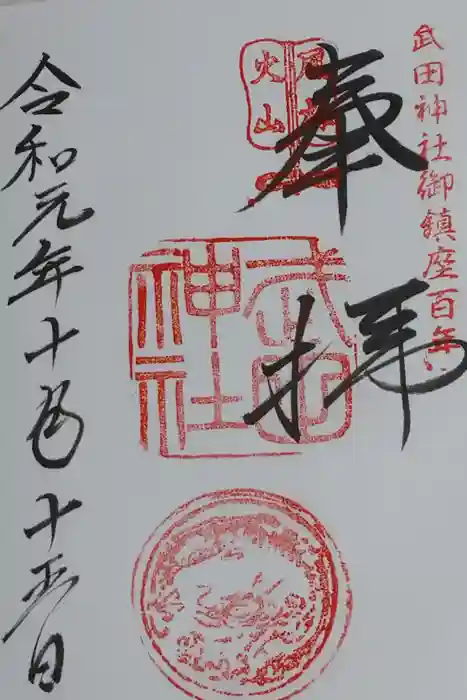 武田神社御鎮座百年
奉拝
風林火山
武田神社
令和元年十月十五日